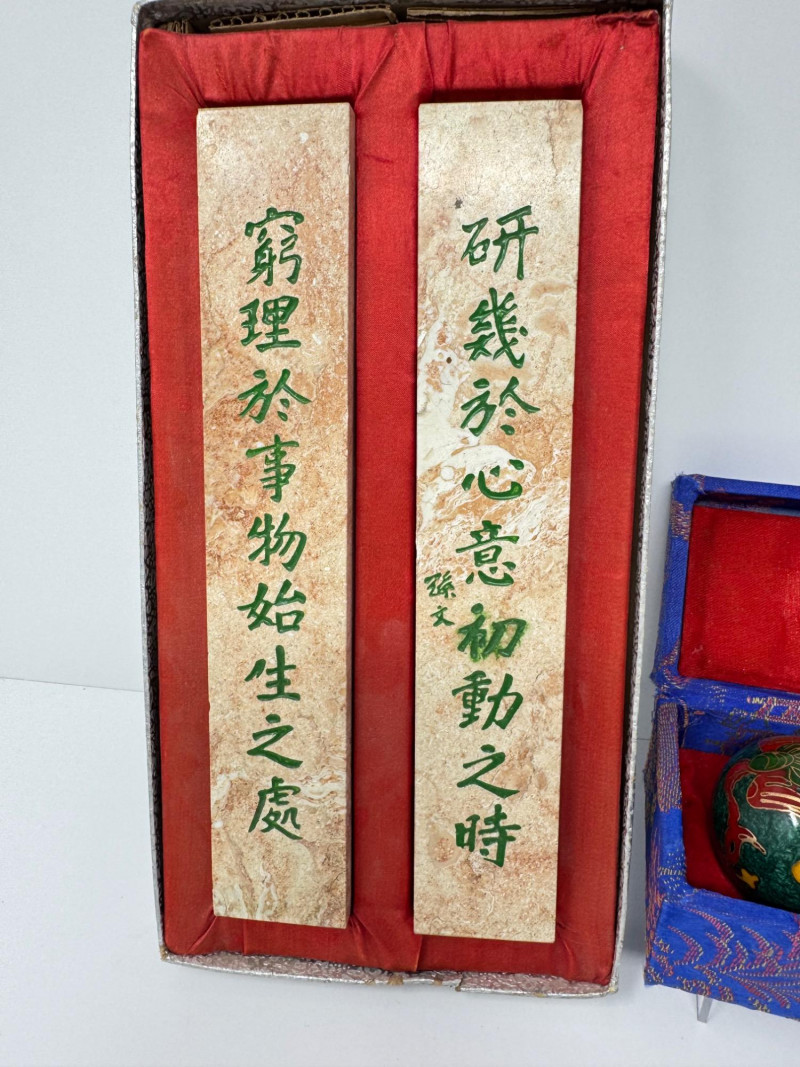 研幾於心意初動之時
孫文
窮理於事物始生之處